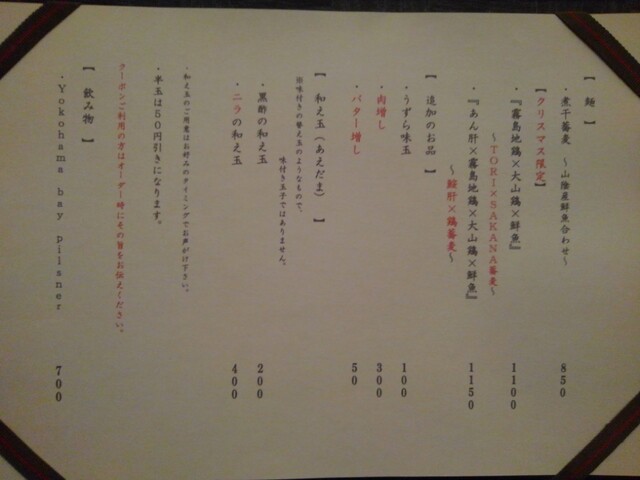 【 麺 】
・煮干蕎麦 ～山陰産鮮魚合わせ～ 850
【クリスマス限定】
・『霧島地鶏×大山鶏×鮮魚』 1100
～TORI×SAKANA蕎麦～
・『あん肝×霧島地鶏×大山鶏×鮮魚』 1150
～鮟肝×鶏蕎麦～
【 追加のお品 】
・うずら味玉 100
・肉増し 300
・バター増し 50
【 和え玉（あえだま） 】
※味付きの替え玉のようなもので、
味付き玉子ではありません。
・黒酢の和え玉 200
・ニラの和え玉 400
・和え玉のご用意はお好みのタイミングでお声がけ下さい。
・半玉は50円引きになります。
クーポンご利用の方はオーダー時にその旨をお伝えください。
【 飲み物 】
・Yokohama bay pilsner 700